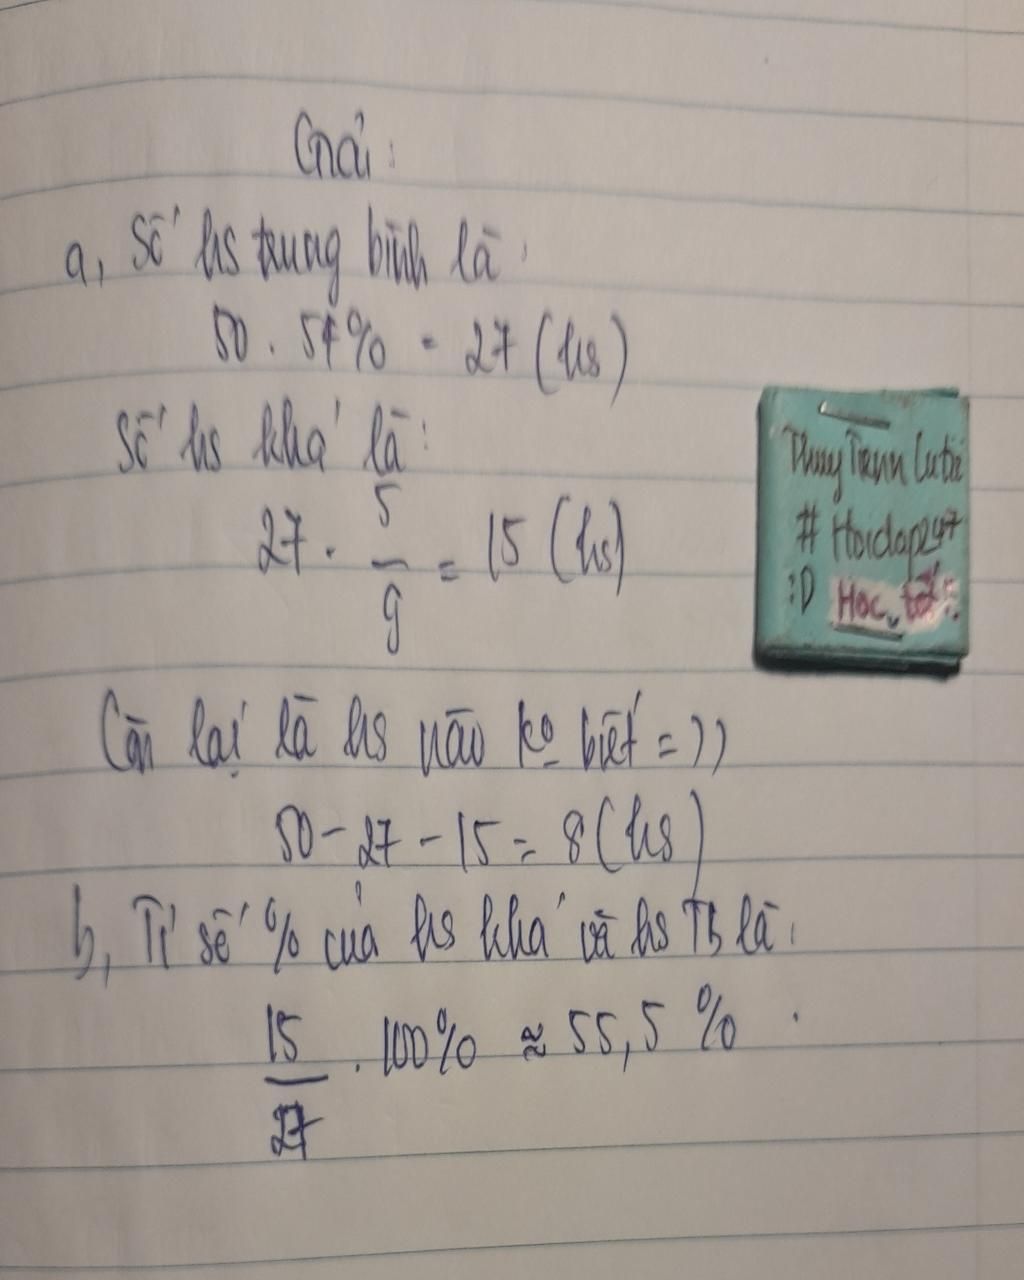 Giải:
a, Số hs trung bình là:
50 . 54% = 27 (hs)
Số hs khá là:
27 . 5/9 = 15 (hs)
Còn lại là hs nào ko biết =))
50 - 27 - 15 = 8 (hs)
b, Tỉ số % của hs khá và hs TB là:
15/27 . 100% ≈ 55,5 %
Thuy Trann Cutie
# Hoidap247
:D Học tốt :